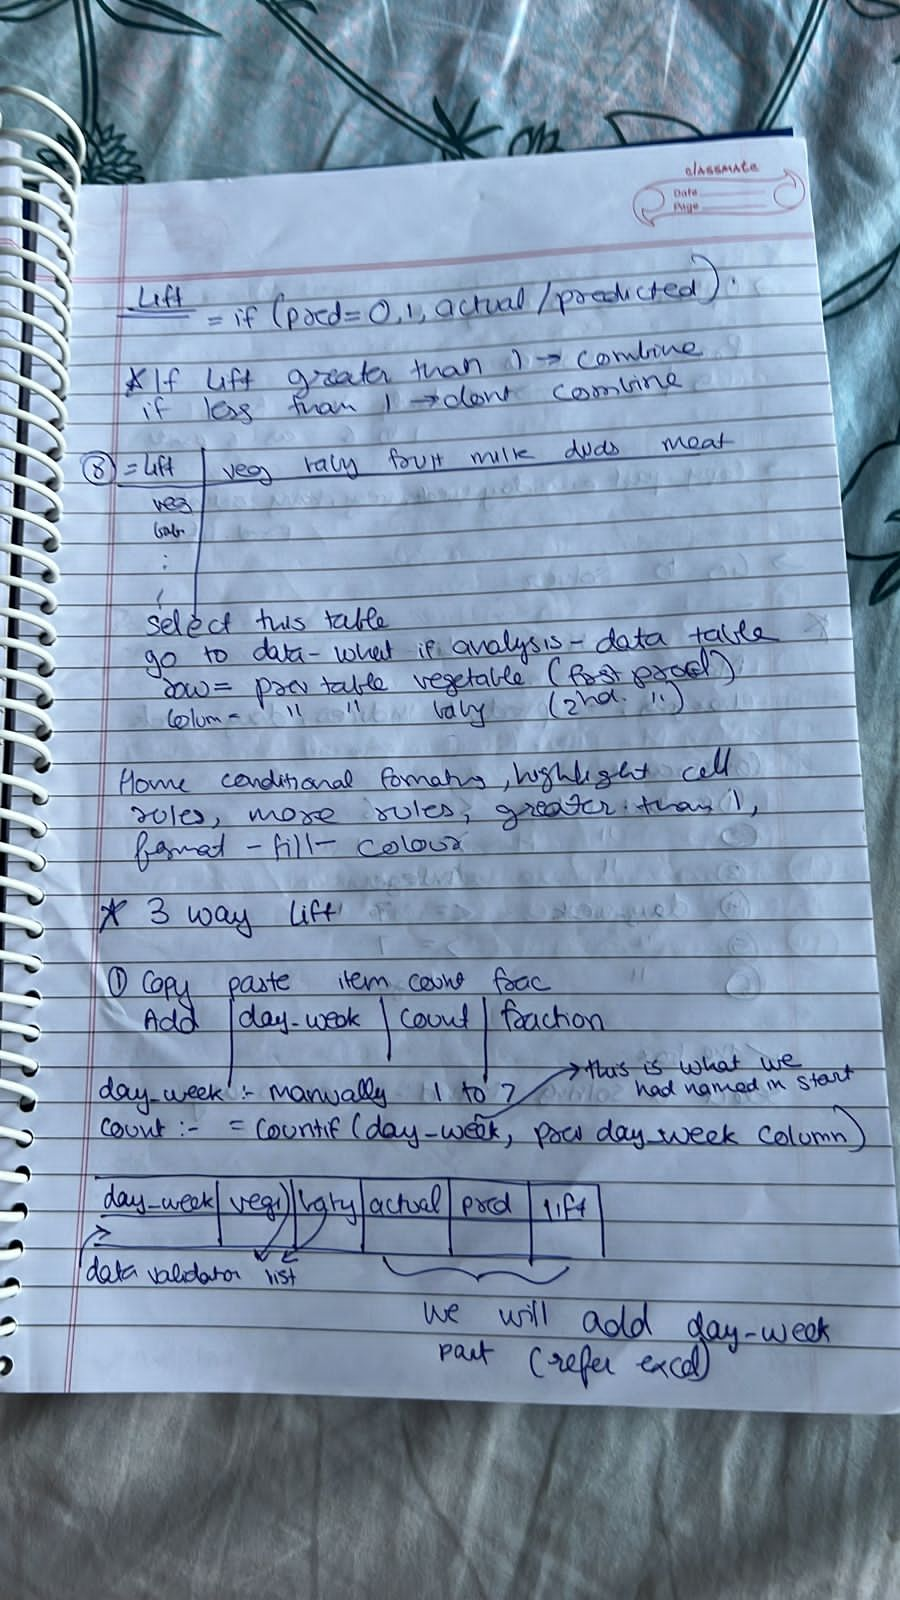 classmate
Date
Page
Lift = if (pred=0,1, actual/predicted).
* If Lift greater than 1 → combine
if less than 1 → dont combine
⑧ = Lift | veg baby fruit milk duds meat
veg
bab
:
select this table
go to data - what if analysis - data table
row = prev table vegetable (first prod)
colum = " " baby (2nd. ")
Home conditional formating, highlight cell
rules, more rules, greater than 1,
format - fill - colour
* 3 way lift
① Copy paste item count frac
Add | day-week | count | fraction
→ this is what we
had named in start
day-week :- manually 1 to 7
count :- = countif (day-week, prev day_week column)
day-week | veg1 | baby | actual | pred | lift
data validator list
we will add day-week
part (refer excel)